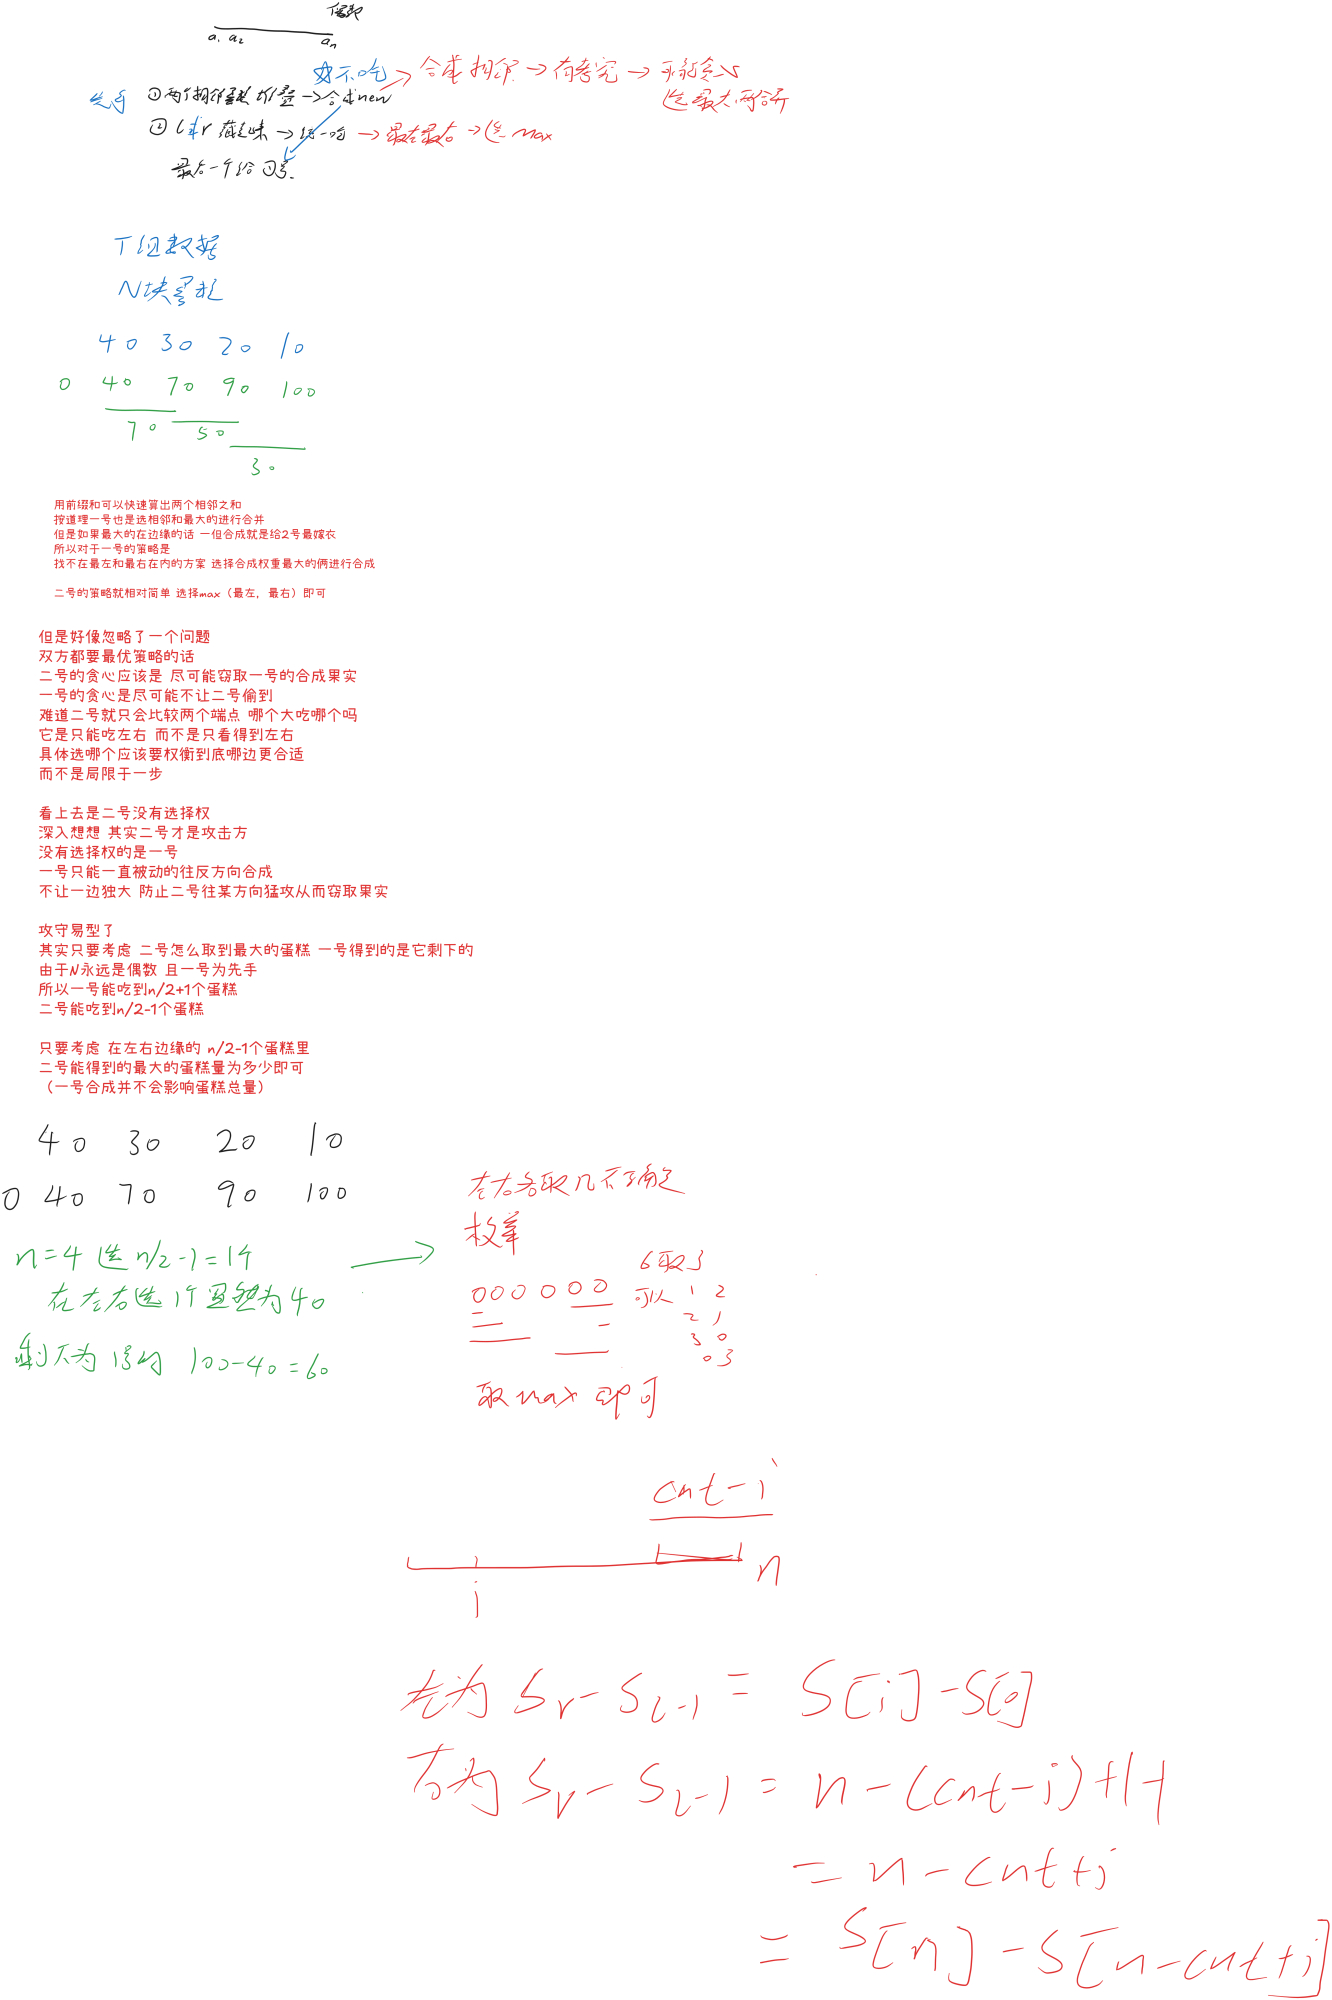 偶数
a₁ a₂ aₙ
如不吃 → 合成相邻 → 有考究 → 
选最大两合并
先手 ①两个相邻蛋糕 → 合成new
② l或r → 统一吃 → 最左最右 → 选max
最后一个给①号.
T组数据
N块蛋糕
40 30 20 10
0 40 70 90 100
70 50
30
用前缀和可以快速算出两个相邻之和
按道理一号也是选相邻和最大的进行合并
但是如果最大的在边缘的话 一但合成就是给2号最嫁衣
所以对于一号的策略是
找不在最左和最右在内的方案 选择合成权重最大的俩进行合成
二号的策略就相对简单 选择max（最左，最右）即可
但是好像忽略了一个问题
双方都要最优策略的话
二号的贪心应该是 尽可能窃取一号的合成果实
一号的贪心是尽可能不让二号偷到
难道二号就只会比较两个端点 哪个大吃哪个吗
它是只能吃左右 而不是只看得到左右
具体选哪个应该要权衡到底哪边更合适
而不是局限于一步
看上去是二号没有选择权
深入想想 其实二号才是攻击方
没有选择权的是一号
一号只能一直被动的往反方向合成
不让一边独大 防止二号往某方向猛攻从而窃取果实
攻守易型了
其实只要考虑 二号怎么取到最大的蛋糕 一号得到的是它剩下的
由于N永远是偶数 且一号为先手
所以一号能吃到n/2+1个蛋糕
二号能吃到n/2-1个蛋糕
只要考虑 在左右边缘的 n/2-1个蛋糕里
二号能得到的最大的蛋糕量为多少即可
（一号合成并不会影响蛋糕总量）
40 30 20 10
0 40 70 90 100
n=4 选 n/2-1=1个
在左右选1个 为40
剩下为1号的 100-40=60
左右各取几不确定
枚举
000000
6取3
可以 1 2
2 1
3 0
0 3
取max即可
cnt-i
i
n
左为 Sr-Sl-1 = S[i]-S[0]
右为 Sr-Sl-1 = n-(cnt-i)+1-1
= n-cnt+i
= S[n]-S[n-cnt+i]